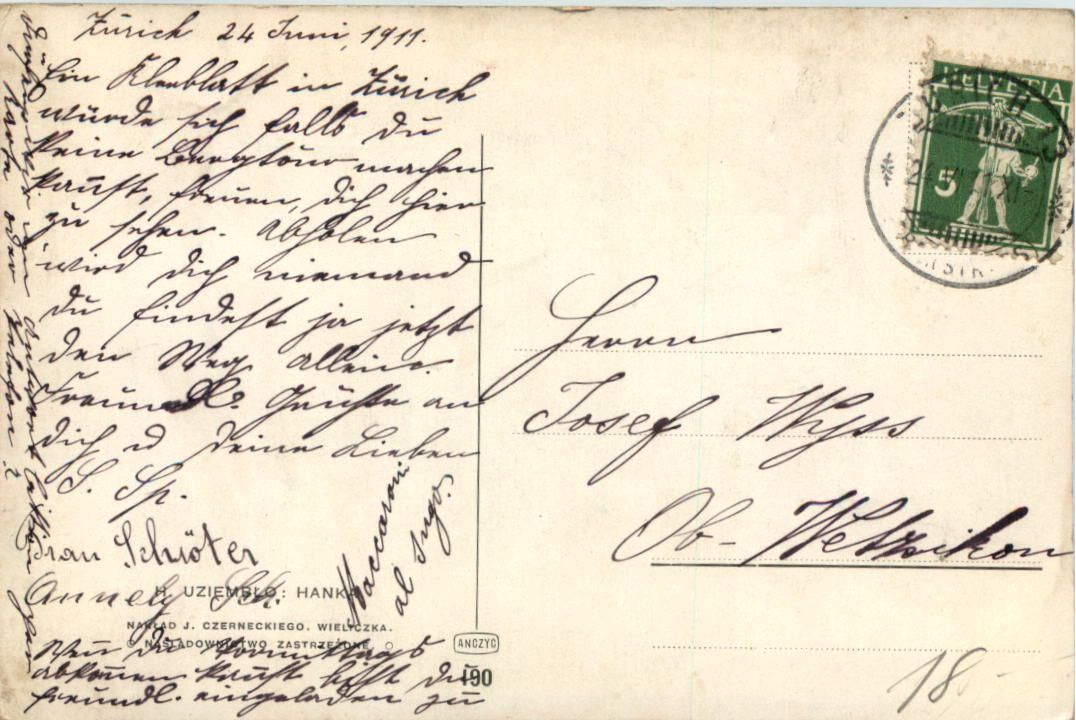 Zürich 24 Juni, 1911.
Ein Kleeblatt in Zürich
würde sich falls du
keine Bergtour machen
kannst, freuen, dich hier
zu sehen. Abholen
wird dich niemand
du findest ja jetzt
den Weg allein.
Freundl. Grüsse an
dich u deine Lieben
S. Sp.
Frau Schröter
Annely Sch.
Maccaroni
al sugo.
Wenn du Vormittags
abkommen kannst bist du
freundl. eingeladen zu
Antwort bitten
Karte oder Telephon?
HELVETIA
5
Herrn
Josef Wyss
Ob-Wetzikon
H. UZIEMBŁO: HANKA
NAKŁAD J. CZERNECKIEGO. WIELICZKA.
© NAŚLADOWNICTWO ZASTRZEŻONE.
ANCZYC
190
18